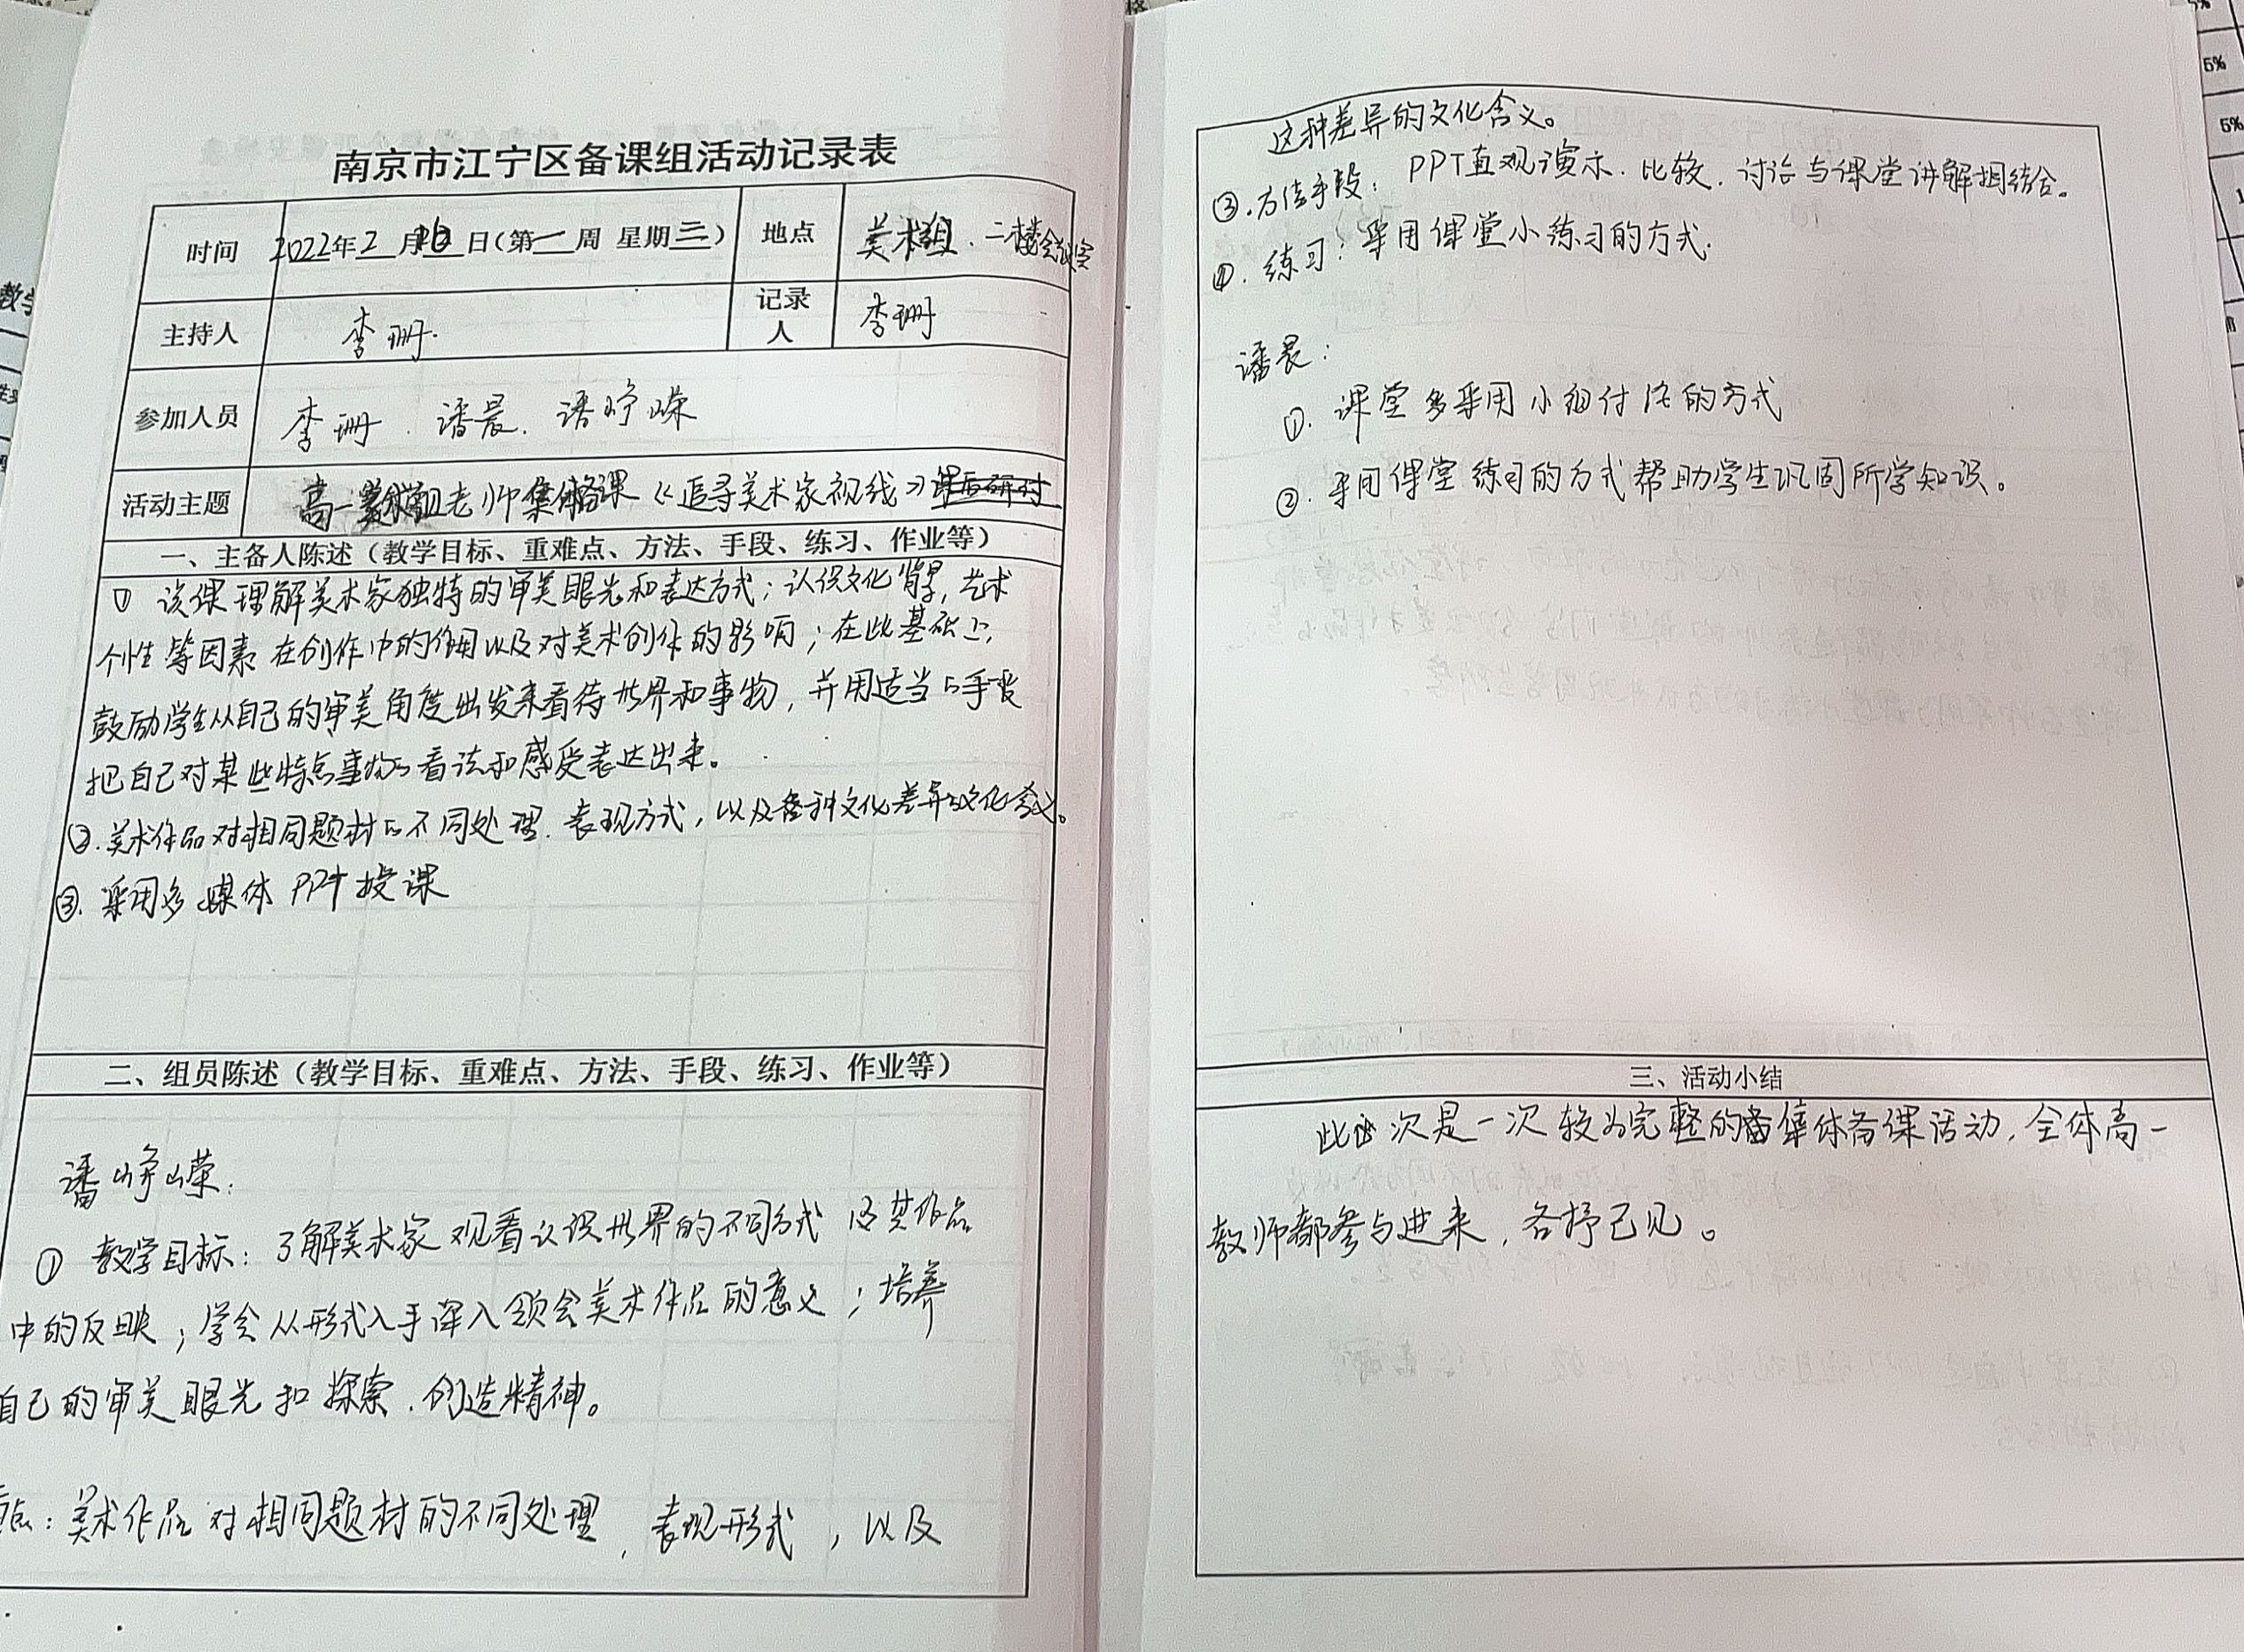 南京市江宁区备课组活动记录表
时间 2022年2月16日(第一周 星期三) 地点 美术组、二楼会议室
主持人 李珊 记录人 李珊
参加人员 李珊、潘晨、潘峥嵘
活动主题 高一美术组老师集体备课《追寻美术家视线》
一、主备人陈述(教学目标、重难点、方法、手段、练习、作业等)
① 该课理解美术家独特的审美眼光和表达方式;认识文化背景,艺术
个性等因素在创作中的作用以及对美术创作的影响;在此基础上,
鼓励学生从自己的审美角度出发来看待世界和事物,并用适当的手段
把自己对某些特点事物的看法和感受表达出来。
②.美术作品对相同题材的不同处理、表现方式,以及各种文化差异的文化含义。
③.采用多媒体PPT授课
二、组员陈述(教学目标、重难点、方法、手段、练习、作业等)
潘峥嵘:
① 教学目标:了解美术家观看认识世界的不同方式 及其作品
中的反映;学会从形式入手深入领会美术作品的意义;培养
自己的审美眼光和探索、创造精神。
点:美术作品对相同题材的不同处理、表现形式,以及
这种差异的文化含义。
③.方法手段:PPT直观演示、比较、讨论与课堂讲解相结合。
④.练习:采用课堂小练习的方式.
潘晨:
①.课堂多采用小组讨论的方式
②.采用课堂练习的方式帮助学生巩固所学知识。
三、活动小结
此次是一次较为完整的集体备课活动,全体高一
教师都参与进来,各抒己见。